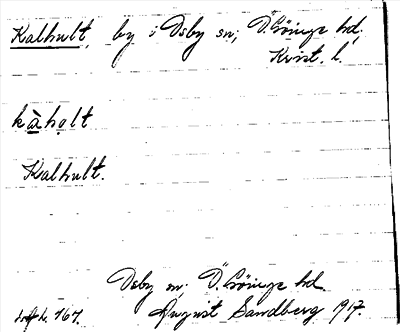 Kalhult, by i Osby sn; Ö. Göinge hd,
Krist. l.
kàhọlt
Kalhult.
Osby sn. Ö. Göinge hd.
August Sandberg 1917.
167.